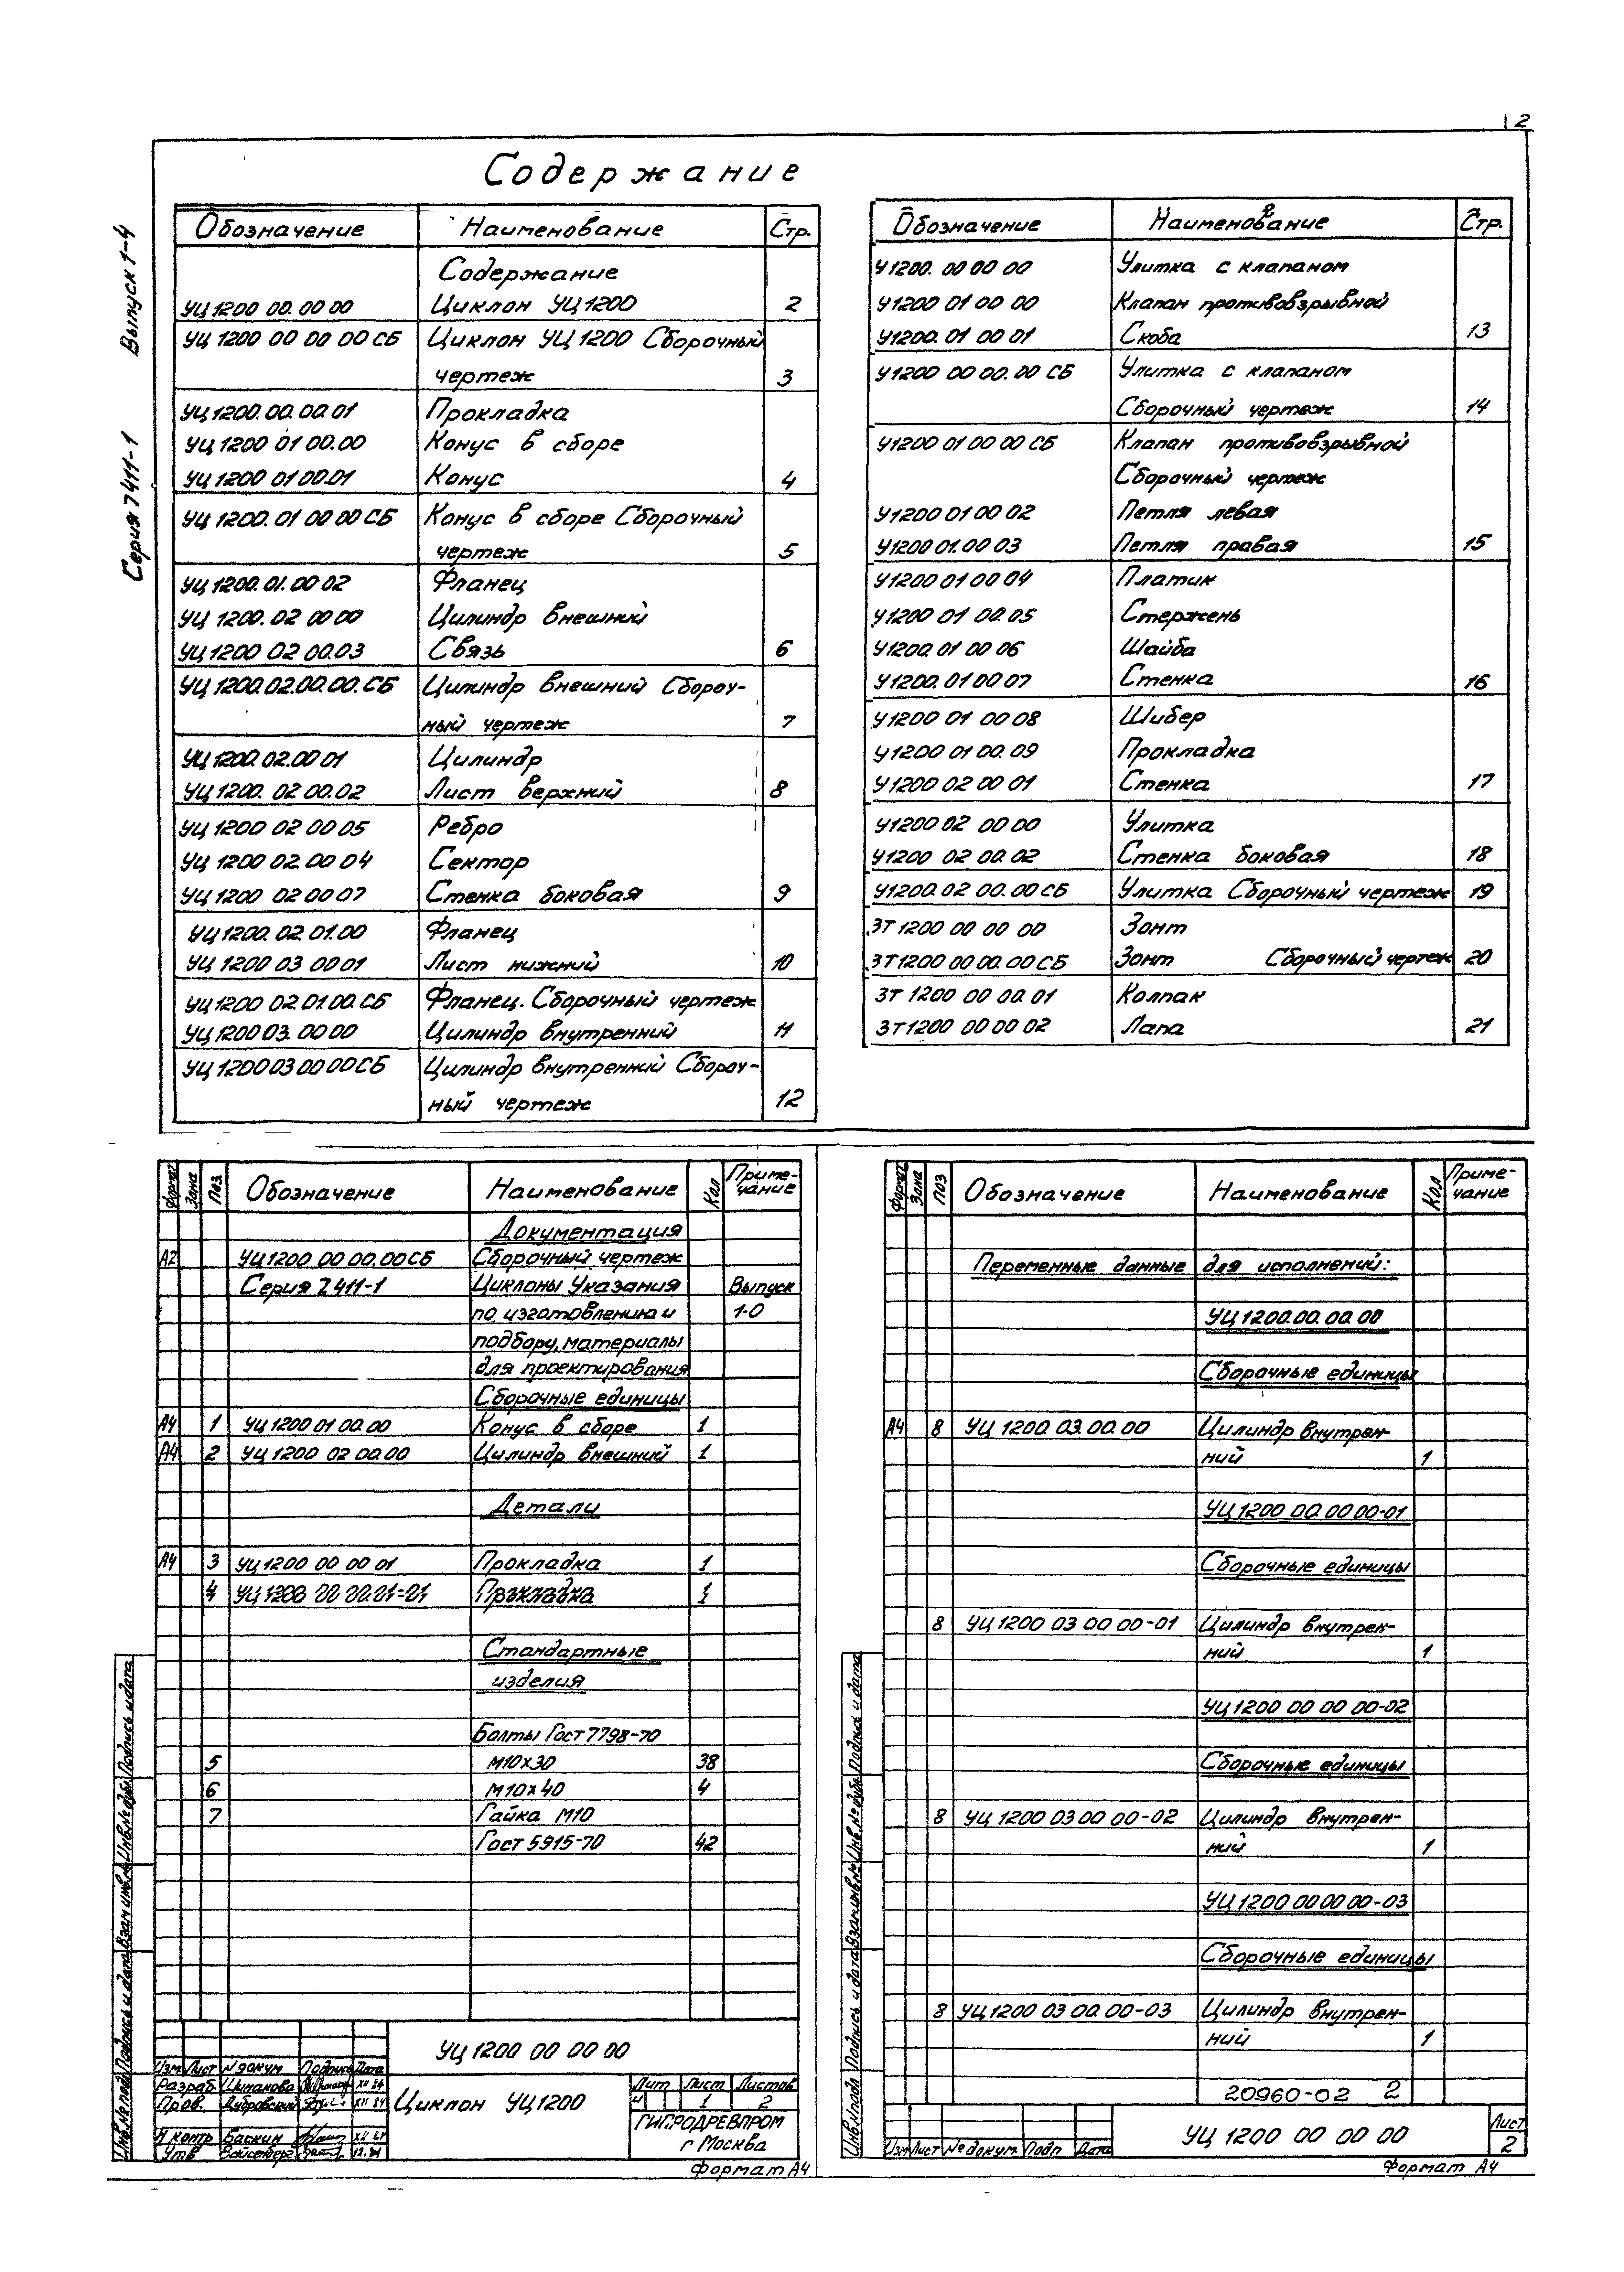 2
Содержание
Серия 7411-1 Выпуск 1-4
Обозначение Наименование Стр.
Содержание
УЦ 1200 00.00 00 Циклон УЦ 1200 2
УЦ 1200 00 00 00 СБ Циклон УЦ 1200 Сборочный
чертеж 3
УЦ 1200.00.00.01 Прокладка
УЦ 1200 01 00.00 Конус в сборе
УЦ 1200 01 00.01 Конус 4
УЦ 1200.01 00 00 СБ Конус в сборе Сборочный
чертеж 5
УЦ 1200.01.00 02 Фланец
УЦ 1200.02 00 00 Цилиндр внешний
УЦ 1200 02 00.03 Связь 6
УЦ 1200.02.00.00.СБ Цилиндр внешний Сбороч-
ный чертеж 7
УЦ 1200.02.00 01 Цилиндр
УЦ 1200. 02 00.02 Лист верхний 8
УЦ 1200 02 00 05 Ребро
УЦ 1200 02.00 04 Сектор
УЦ 1200 02 00 07 Стенка боковая 9
УЦ 1200.02 01.00 Фланец
УЦ 1200 03 00 01 Лист нижний 10
УЦ 1200 02 01.00.СБ Фланец. Сборочный чертеж
УЦ 1200 03. 00 00 Цилиндр внутренний 11
УЦ 1200 03 00 00 СБ Цилиндр внутренний Сбороч-
ный чертеж 12
Обозначение Наименование Стр.
У1200. 00 00 00 Улитка с клапаном
У1200 01 00 00 Клапан противовзрывной
У1200. 01 00 01 Скоба 13
У1200 00 00. 00 СБ Улитка с клапаном
Сборочный чертеж 14
У1200 01 00 00 СБ Клапан противовзрывной
Сборочный чертеж
У1200 01 00 02 Петля левая
У1200 01.00 03 Петля правая 15
У1200 01 00 04 Платик
У1200 01 00.05 Стержень
У1200.01 00 06 Шайба
У1200. 01 00 07 Стенка 16
У1200 01 00 08 Шибер
У1200 01 00.09 Прокладка
У1200 02 00 01 Стенка 17
У1200 02 00 00 Улитка
У1200 02 00.02 Стенка боковая 18
У1200.02 00.00 СБ Улитка Сборочный чертеж 19
ЗТ 1200 00 00 00 Зонт
ЗТ 1200 00 00.00 СБ Зонт Сборочный чертеж 20
ЗТ 1200 00 00.01 Колпак
ЗТ 1200 00 00 02 Лапа 21
Формат Зона Поз Обозначение Наименование Кол Приме-
чание
Документация
А2 УЦ 1200 00 00.00 СБ Сборочный чертеж
Серия 7.411-1 Циклоны Указания Выпуск
по изготовлению и 1-0
подбору, материалы
для проектирования
Сборочные единицы
А4 1 УЦ 1200 01 00.00 Конус в сборе 1
А4 2 УЦ 1200 02 00.00 Цилиндр внешний 1
Детали
А4 3 УЦ 1200 00 00 01 Прокладка 1
4 УЦ 1200 00 00.01-01 Прокладка 1
Стандартные
изделия
Болты Гост 7798-70
5 М10х30 38
6 М10х40 4
7 Гайка М10
Гост 5915-70 42
Подпись и дата
Инв.№ дубл
Взам инв.№
Подпись и дата
Инв.№ подл
УЦ 1200 00 00 00
Изм Лист № докум Подпись Дата
Разраб Шинакова XII 84
Пров. Дубровский XII 84
Н контр Баскин XII 84
Утв Вайсенберг 12.84
Циклон УЦ 1200
Лит Лист Листов
И 1 2
ГИПРОДРЕВПРОМ
г Москва
Формат А4
Формат Зона Поз Обозначение Наименование Кол Приме-
чание
Переменные данные для исполнений:
УЦ 1200.00.00.00
Сборочные единицы
А4 8 УЦ 1200.03.00.00 Цилиндр внутрен-
ний 1
УЦ 1200 00.00 00-01
Сборочные единицы
8 УЦ 1200 03 00 00-01 Цилиндр внутрен-
ний 1
УЦ 1200 00 00 00-02
Сборочные единицы
8 УЦ 1200 03 00 00-02 Цилиндр внутрен-
ний 1
УЦ 1200 00 00 00-03
Сборочные единицы
8 УЦ 1200 03 00.00-03 Цилиндр внутрен-
ний 1
20960-02 2
Подпись и дата
Инв.№ дубл
Взам инв.№
Подпись и дата
Инв.№ подл
Изм Лист № докум. Подп Дата
УЦ 1200 00 00 00
Лист
2
Формат А4